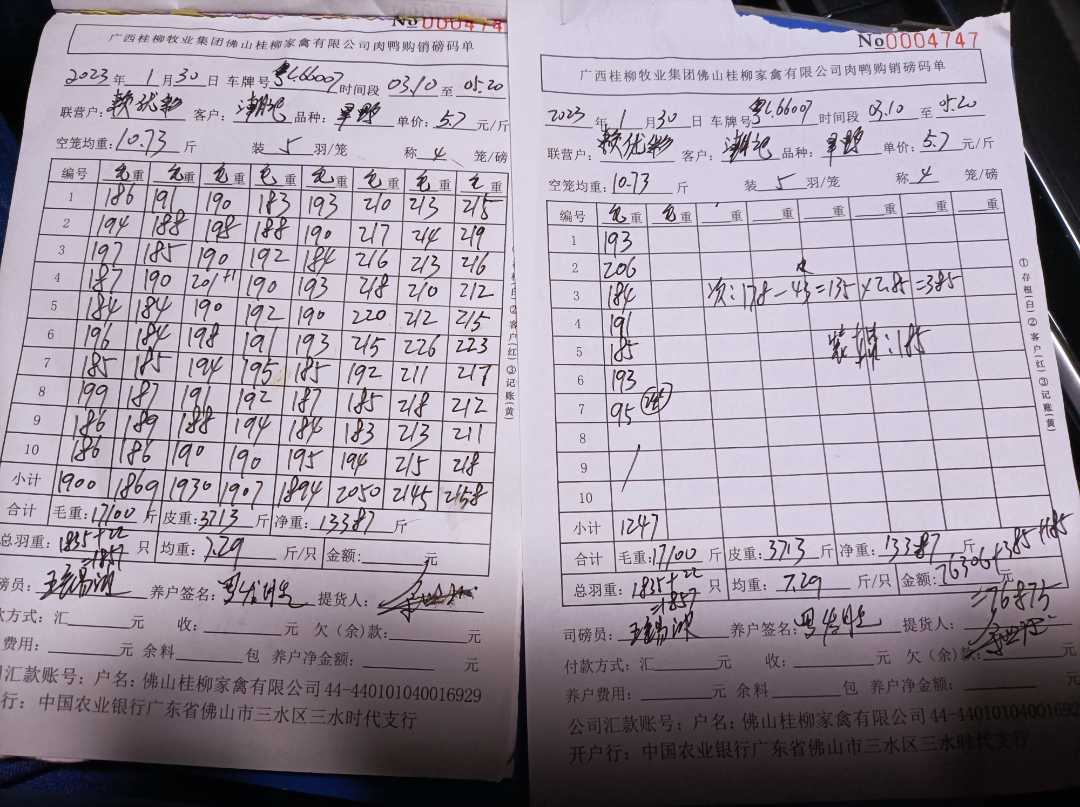 No 0004746
广西桂柳牧业集团佛山桂柳家禽有限公司肉鸭购销磅码单
2023年 1月30日 车牌号 粤L66007 时间段 03.10 至 05.20
联营户: 赖优彩 客户: 潮记 品种: 单价: 5.7 元/斤
空笼均重: 10.73 斤 装 5 羽/笼 称 4 笼/磅
编号 毛重 毛重 毛重 毛重 毛重 毛重 毛重 毛重
1 186 191 190 183 193 210 213 215
2 194 188 198 188 190 217 214 219
3 197 185 190 192 184 216 213 216
4 187 190 201+1 190 193 218 210 212
5 184 184 190 192 190 220 212 215
6 196 184 198 191 193 215 226 223
7 185 185 194 195 185 192 211 217
8 199 187 191 192 187 185 218 212
9 186 189 188 194 184 183 213 211
10 186 186 190 190 195 194 215 218
小计 1900 1869 1930 1907 1894 2050 2145 2158
合计 毛重: 17100 斤 皮重: 3713 斤 净重: 13387 斤
总羽重: 1835+22=1857 只 均重: 7.29 斤/只 金额: 元
磅员: 养户签名: 提货人:
款方式: 汇 元 收: 元 欠(余)款: 元
费用: 元 余料 包 养户净金额: 元
司汇款账号: 户名: 佛山桂柳家禽有限公司 44-440101040016929
行: 中国农业银行广东省佛山市三水区三水时代支行
②客户(红)③记账(黄)
No 0004747
广西桂柳牧业集团佛山桂柳家禽有限公司肉鸭购销磅码单
2023年 1月30日 车牌号 粤L66007 时间段 03.10 至 05.20
联营户: 赖优彩 客户: 潮记 品种: 单价: 5.7 元/斤
空笼均重: 10.73 斤 装 5 羽/笼 称 4 笼/磅
编号 毛重 毛重 重 重 重 重 重 重
1 193
2 206
3 184 次: 178-43=135×2.85=385
4 191
5 185 : 185
6 193
7 95
8
9
10
小计 1247
合计 毛重: 17100 斤 皮重: 3713 斤 净重: 13387 斤
总羽重: 1835+22=1857 只 均重: 7.29 斤/只 金额: 76306+385+185=76875 元
司磅员: 养户签名: 提货人:
付款方式: 汇 元 收: 元 欠(余)款: 元
养户费用: 元 余料 包 养户净金额: 元
公司汇款账号: 户名: 佛山桂柳家禽有限公司 44-44010104001692
开户行: 中国农业银行广东省佛山市三水区三水时代支行
①存根(白)②客户(红)③记账(黄)